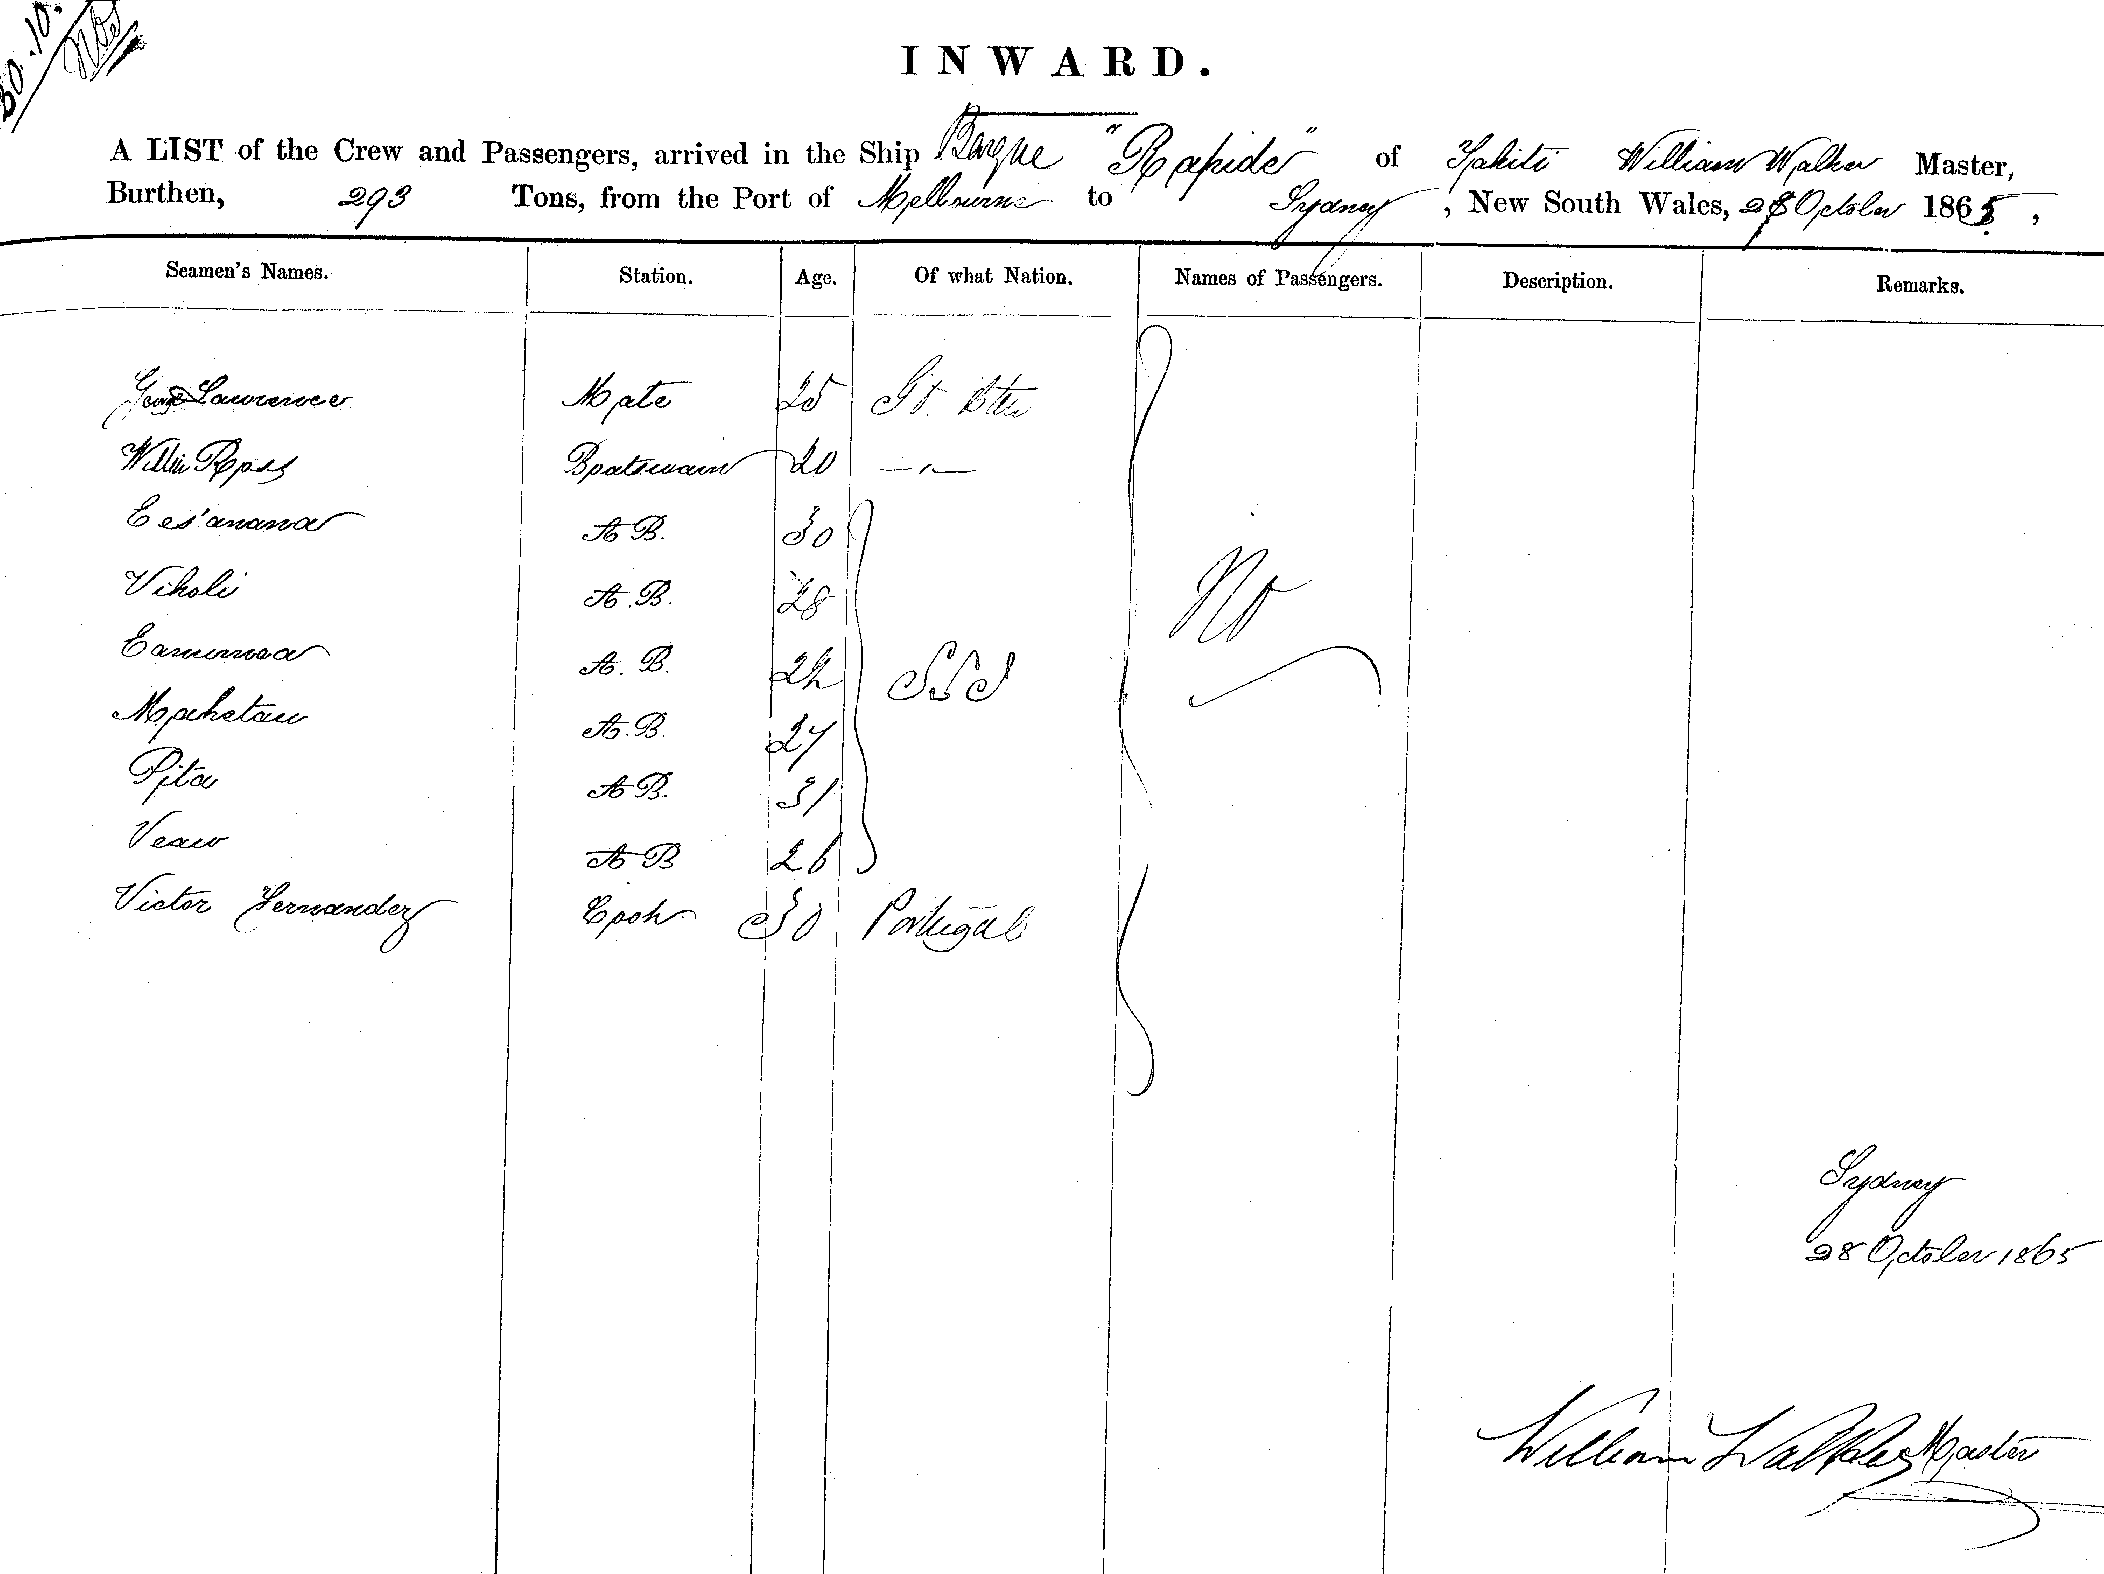 30.10.
INWARD.
A LIST of the Crew and Passengers, arrived in the Ship Barque "Rapide" of Tahiti William Walker Master,
Burthen, 293 Tons, from the Port of Melbourne to Sydney, New South Wales, 28 October 1865,
Seamen's Names. Station. Age. Of what Nation. Names of Passengers. Description. Remarks.
Lawrence Mate 25 Gt.
Ross Boatswain 20 — " —
A B. 30
Viholi A. B. 28
No
A. B. 22 S S I
Mahetau A. B. 27
Pita A B. 31
A B 26
Victor Fernandez Cook 30 Portugal
Sydney
28 October 1865
William Walker Master